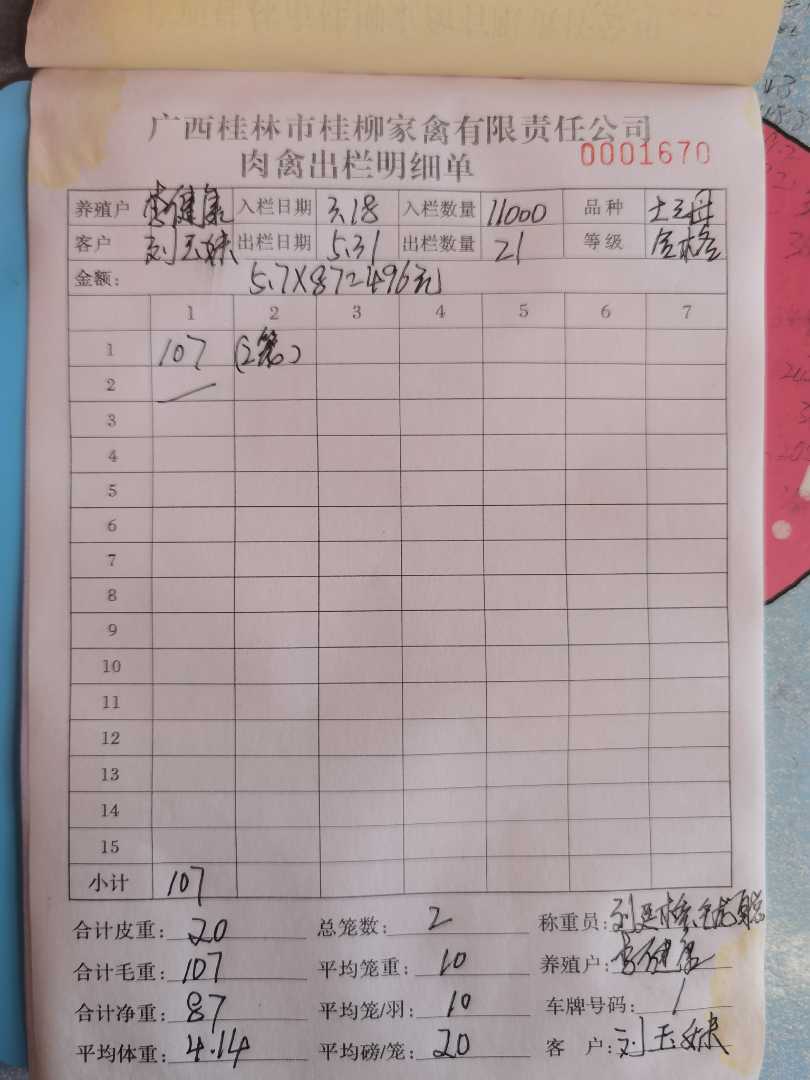 广西桂林市桂柳家禽有限责任公司
肉禽出栏明细单 0001670
养殖户 李健康 入栏日期 3.18 入栏数量 11000 品种
客户 刘玉妹 出栏日期 5.31 出栏数量 21 等级 合格
金额: 5.7X87=496元
1 2 3 4 5 6 7
1 107 (2笼)
2
3
4
5
6
7
8
9
10
11
12
13
14
15
小计 107
合计皮重: 20 总笼数: 2 称重员:
合计毛重: 107 平均笼重: 10 养殖户: 李健康
合计净重: 87 平均笼/羽: 10 车牌号码: /
平均体重: 4.14 平均磅/笼: 20 客户: 刘玉妹